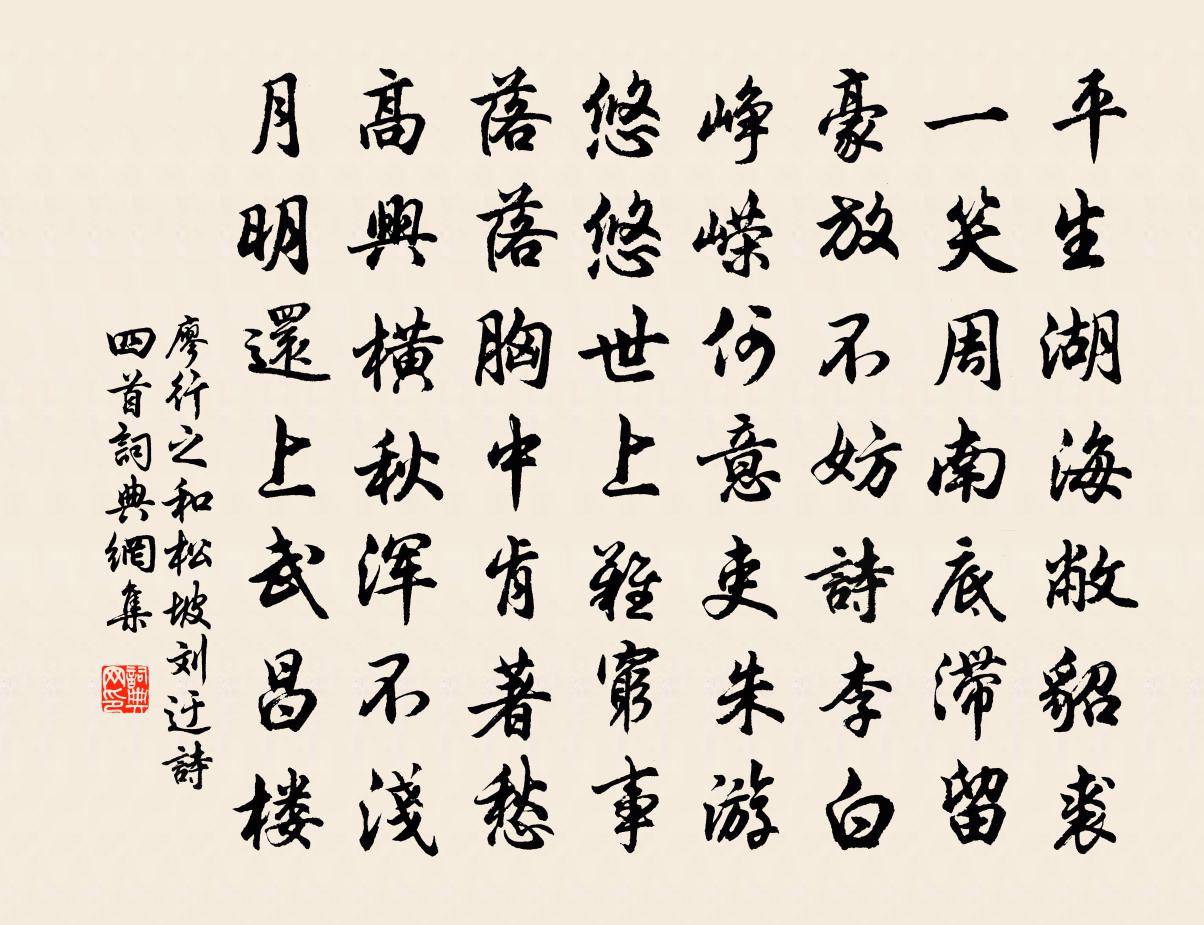 平生湖海敝貂裘
一笑周南底滞留
豪放不妨詩李白
峥嵘何意吏朱游
悠悠世上難窮事
落落胸中肯著愁
高興橫秋浑不淺
月明還上武昌楼
廖行之和松坡刘迂詩
四首詞典網集
詞典网印